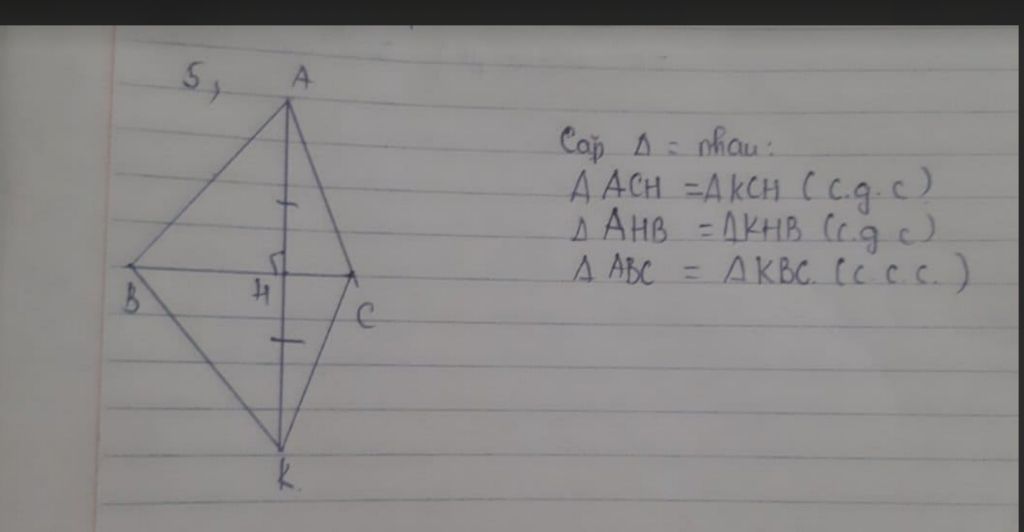 5,
A
B
H
C
K
Cặp Δ = nhau:
Δ ACH = ΔKCH (c.g.c)
Δ AHB = ΔKHB (c.g c)
Δ ABC = ΔKBC. (c.c.c.)